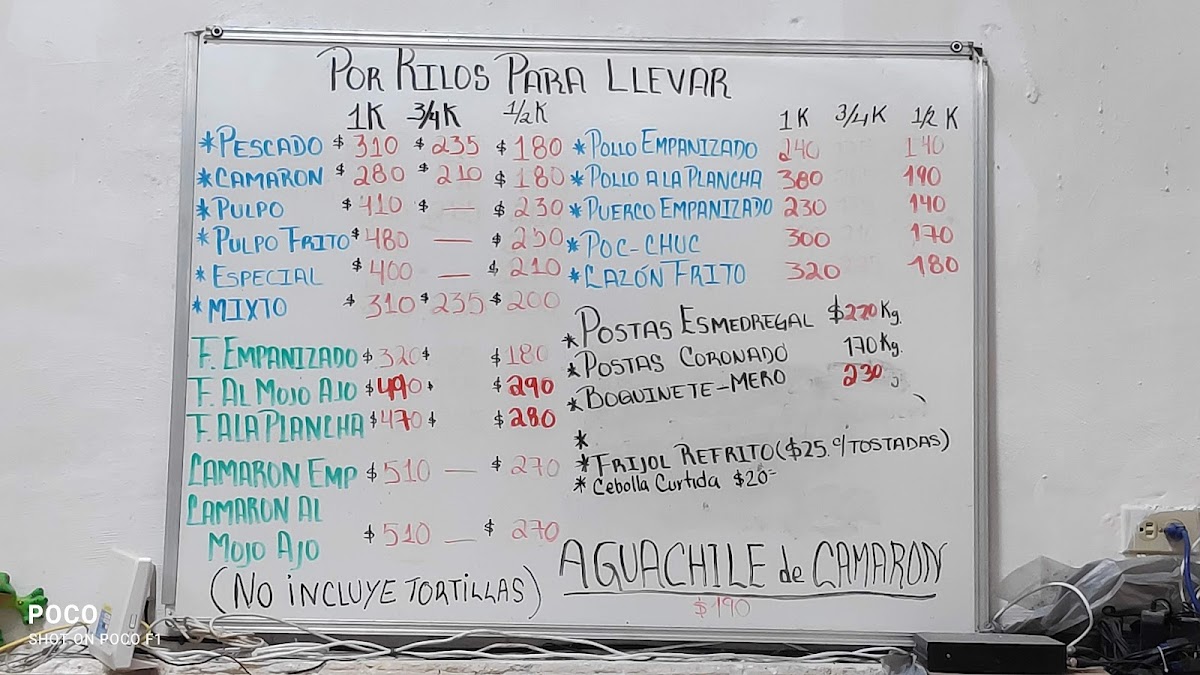 POR KILOS PARA LLEVAR
1K 3/4K 1/2K
*PESCADO $310 $235 $180
*CAMARON $280 $210 $180
*PULPO $410 $ — $230
*PULPO FRITO $480 — $250
*ESPECIAL $400 — $210
*MIXTO $310 $235 $200
F. EMPANIZADO $320 $ $180
F. AL MOJO AJO $490 $ $290
F. A LA PLANCHA $470 $ $280
CAMARON EMP $510 — $270
CAMARON AL
MOJO AJO $510 — $270
(NO INCLUYE TORTILLAS)
1K 3/4K 1/2K
*POLLO EMPANIZADO 240 140
*POLLO A LA PLANCHA 380 190
*PUERCO EMPANIZADO 230 140
*POC-CHUC 300 170
*CAZÓN FRITO 320 180
*POSTAS ESMEDREGAL $220 Kg.
*POSTAS CORONADO 170 Kg.
*BOQUINETE-MERO 230
*
*FRIJOL REFRITO ($25. c/TOSTADAS)
*Cebolla Curtida $20=
AGUACHILE de CAMARON
$190
POCO
SHOT ON POCO F1